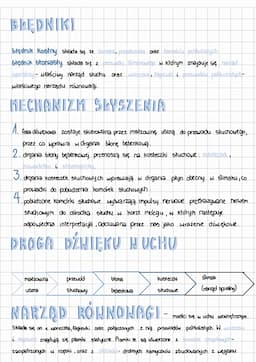 BŁĘDNIKI
błędnik kostny składa się ze ślimaka, przedsionka oraz kanałów półkolistych
błędnik błoniasty składa się z przewodu ślimakowego w którym znajduje się narząd
spiralny - właściwy narząd słuchu oraz woreczka, łagiewki i przewodów półkolistych -
właściwego narządu równowagi.
MECHANIZM SŁYSZENIA
1. fala dźwiękowa zostaje skierowana przez małżowinę uszną do przewodu słuchowego,
przez co wprawia w drgania błonę bębenkową.
2. drgania błony bębenkowej przenoszą się na kosteczki słuchowe: młoteczek,
kowadełko i strzemiączko.
3. drgania kosteczek słuchowych wprawiają w drgania płyn obecny w ślimaku, co
prowadzi do pobudzenia komórek słuchowych
4. pobudzone komórki słuchowe wytwarzają impulsy nerwowe przekazywane nerwem
słuchowym do ośrodka słuchu w korze mózgu, w którym następuje
odpowiednia interpretacja, odczuwana przez nas jako wrażenie dźwiękowe.
DROGA DŹWIĘKU W UCHU
małżowina uszna
przewód słuchowy
błona bębenkowa
kosteczki słuchowe
ślimak (narząd spiralny)
NARZĄD RÓWNOWAGI - mieści się w uchu wewnętrznym.
Składa się on z woreczka, łagiewki oraz połączonych z nią przewodów półkolistych. W woreczku
i łagiewce znajdują się plamki statyczne. Plamki te są utworzone z komórek zmysłowych
zaopatrzonych w rzęski oraz z otolitów - drobnych kamyczków zbudowanych z węglanu